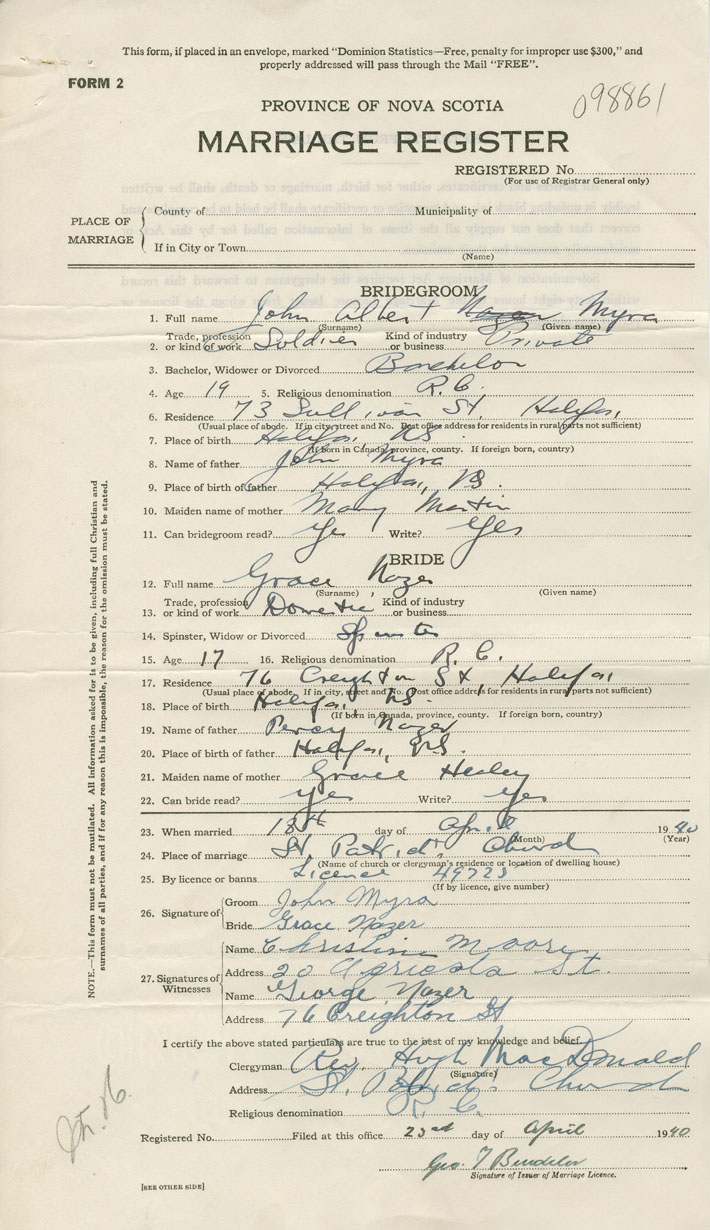 This form, if placed in an envelope, marked "Dominion Statistics—Free, penalty for improper use $300," and
properly addressed will pass through the Mail "FREE".
FORM 2
098861
PROVINCE OF NOVA SCOTIA
MARRIAGE REGISTER
REGISTERED No.
(For use of Registrar General only)
PLACE OF MARRIAGE
County of Municipality of
If in City or Town
(Name)
BRIDEGROOM
1. Full name John Albert Myra
(Surname) (Given name)
2. Trade, profession or kind of work Soldier Kind of industry or business Private
3. Bachelor, Widower or Divorced Bachelor
4. Age 19 5. Religious denomination R.C.
6. Residence 73 Sullivan St, Halifax,
(Usual place of abode. If in city, street and No. Post office address for residents in rural parts not sufficient)
7. Place of birth Halifax, NS
(If born in Canada, province, county. If foreign born, country)
8. Name of father John Myra
9. Place of birth of father Halifax, NS.
10. Maiden name of mother Mary Martin
11. Can bridegroom read? Yes Write? Yes
BRIDE
12. Full name Grace Nazer
(Surname) (Given name)
13. Trade, profession or kind of work Domestic Kind of industry or business
14. Spinster, Widow or Divorced Spinster
15. Age 17 16. Religious denomination R. C.
17. Residence 76 Creighton St, Halifax
(Usual place of abode. If in city, street and No. Post office address for residents in rural parts not sufficient)
18. Place of birth Halifax, NS.
(If born in Canada, province, county. If foreign born, country)
19. Name of father Percy Nazer
20. Place of birth of father Halifax, NS.
21. Maiden name of mother Grace Healey
22. Can bride read? Yes Write? Yes
23. When married 18th day of April 1940
(Month) (Year)
24. Place of marriage St. Patrick's Church
(Name of church or clergyman's residence or location of dwelling house)
25. By licence or banns Licence 49723
(If by licence, give number)
26. Signature of
Groom John Myra
Bride Grace Nazer
27. Signatures of Witnesses
Name Christine Moore
Address 20 Agricola St.
Name George Nazer
Address 76 Creighton St
I certify the above stated particulars are true to the best of my knowledge and belief.
Clergyman Rev. Hugh MacDonald
(Signature)
Address St. Patrick's Church
Religious denomination R. C.
Registered No. Filed at this office 23rd day of April 1940
Geo. T
Signature of Issuer of Marriage Licence.
[SEE OTHER SIDE]
NOTE.—This form must not be mutilated. All information asked for is to be given, including full Christian and
surnames of all parties, and if for any reason this is impossible, the reason for the omission must be stated.